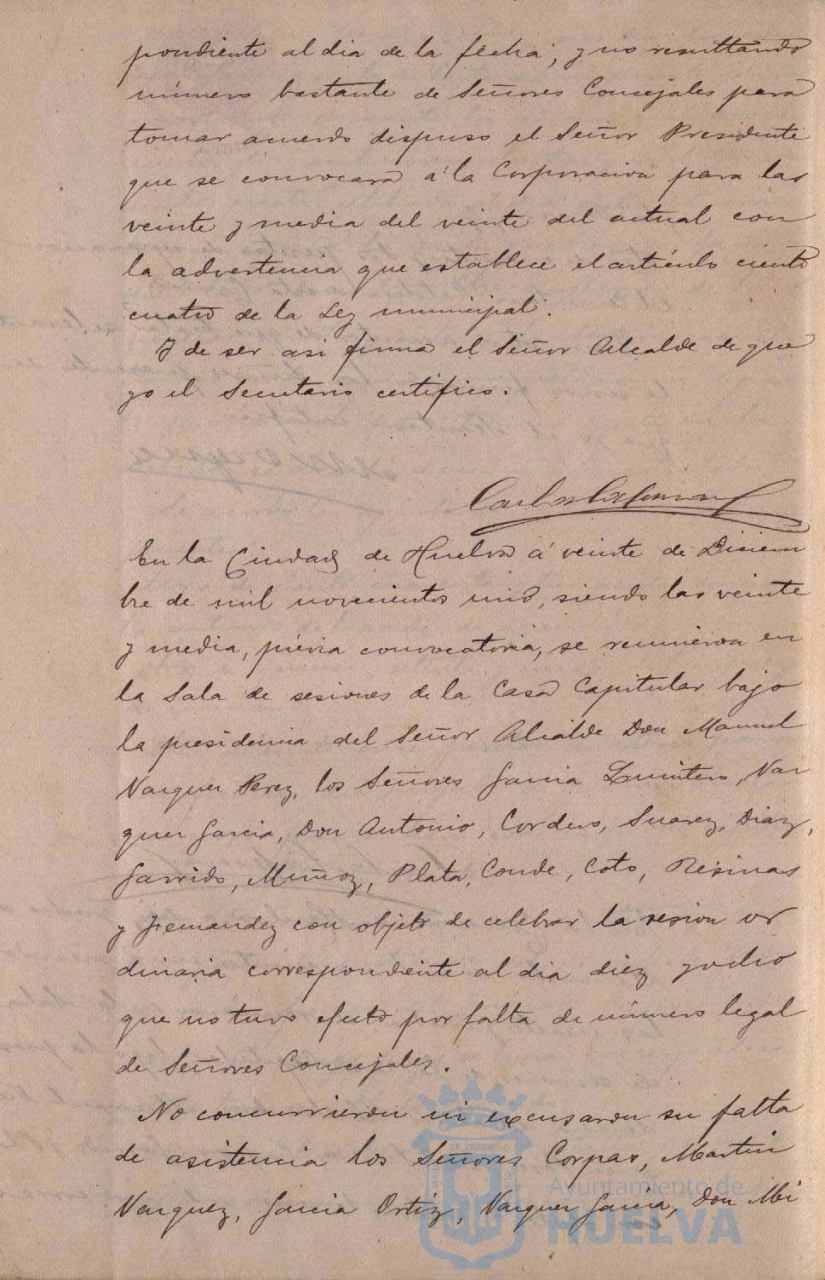 pondiente al dia de la fecha; y no resultando
número bastante de Señores Concejales para
tomar acuerdo dispuso el Señor Presidente
que se convocara á la Corporacion para las
veinte y media del veinte del actual con
la advertencia que establece el artículo ciento
cuatro de la Ley municipal.
Y de ser asi firma el Señor Alcalde de que
yo el Secretario certifico.
Carlos
En la Ciudad de Huelva á veinte de Diciem
bre de mil novecientos uno, siendo las veinte
y media, prévia convocatoria, se reunieron en
la Sala de sesiones de la Casa Capitular bajo
la presidencia del Señor Alcalde Don Manuel
Vazquez Perez, los Señores Garcia Quintero, Vaz
quez Garcia, Don Antonio, Cordero, Suarez, Diaz,
Garrido, Muñoz, Plata, Conde, Coto, Resinas
y Fernandez con objeto de celebrar la sesion or
dinaria correspondiente al dia diez y ocho
que no tuvo efecto por falta de número legal
de Señores Concejales.
No concurrieron ni excusaron su falta
de asistencia los Señores Corpas, Martin
Vazquez, Garcia Ortiz, Vazquez Garcia, Don Mi
Ayuntamiento de
HUELVA